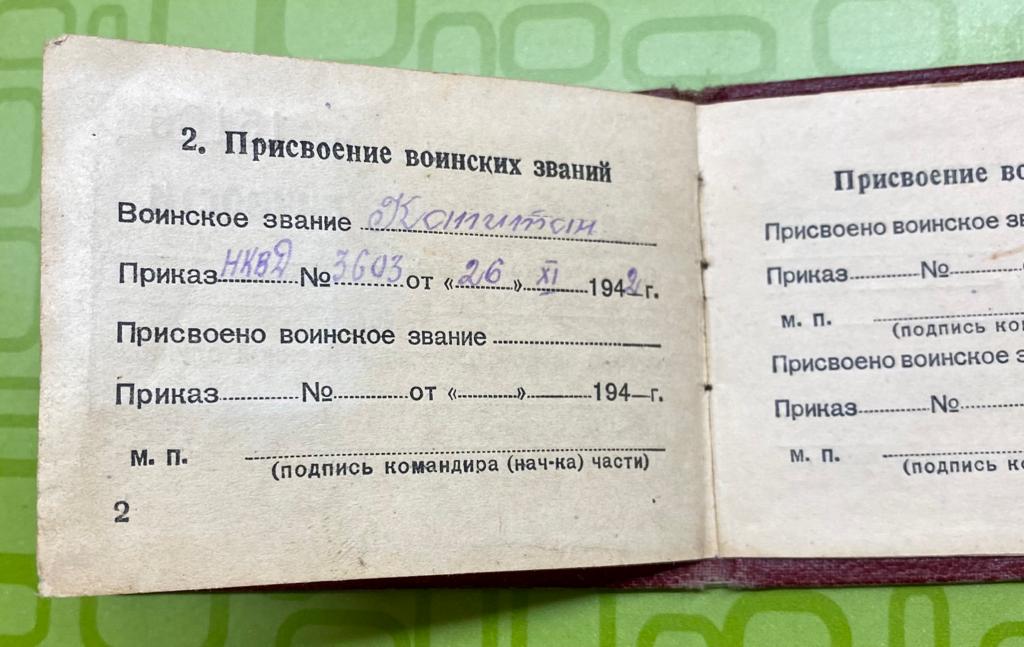 2. Присвоение воинских званий
Воинское звание Капитан
Приказ НКВД № 3603 от «26» XI 1942 г.
Присвоено воинское звание
Приказ № от « » 194 г.
м. п.
(подпись командира (нач-ка) части)
2
Присвоение
Присвоено воинское
Приказ №
м. п.
(подпись
Присвоено воинское
Приказ №
м. п.
(подпись